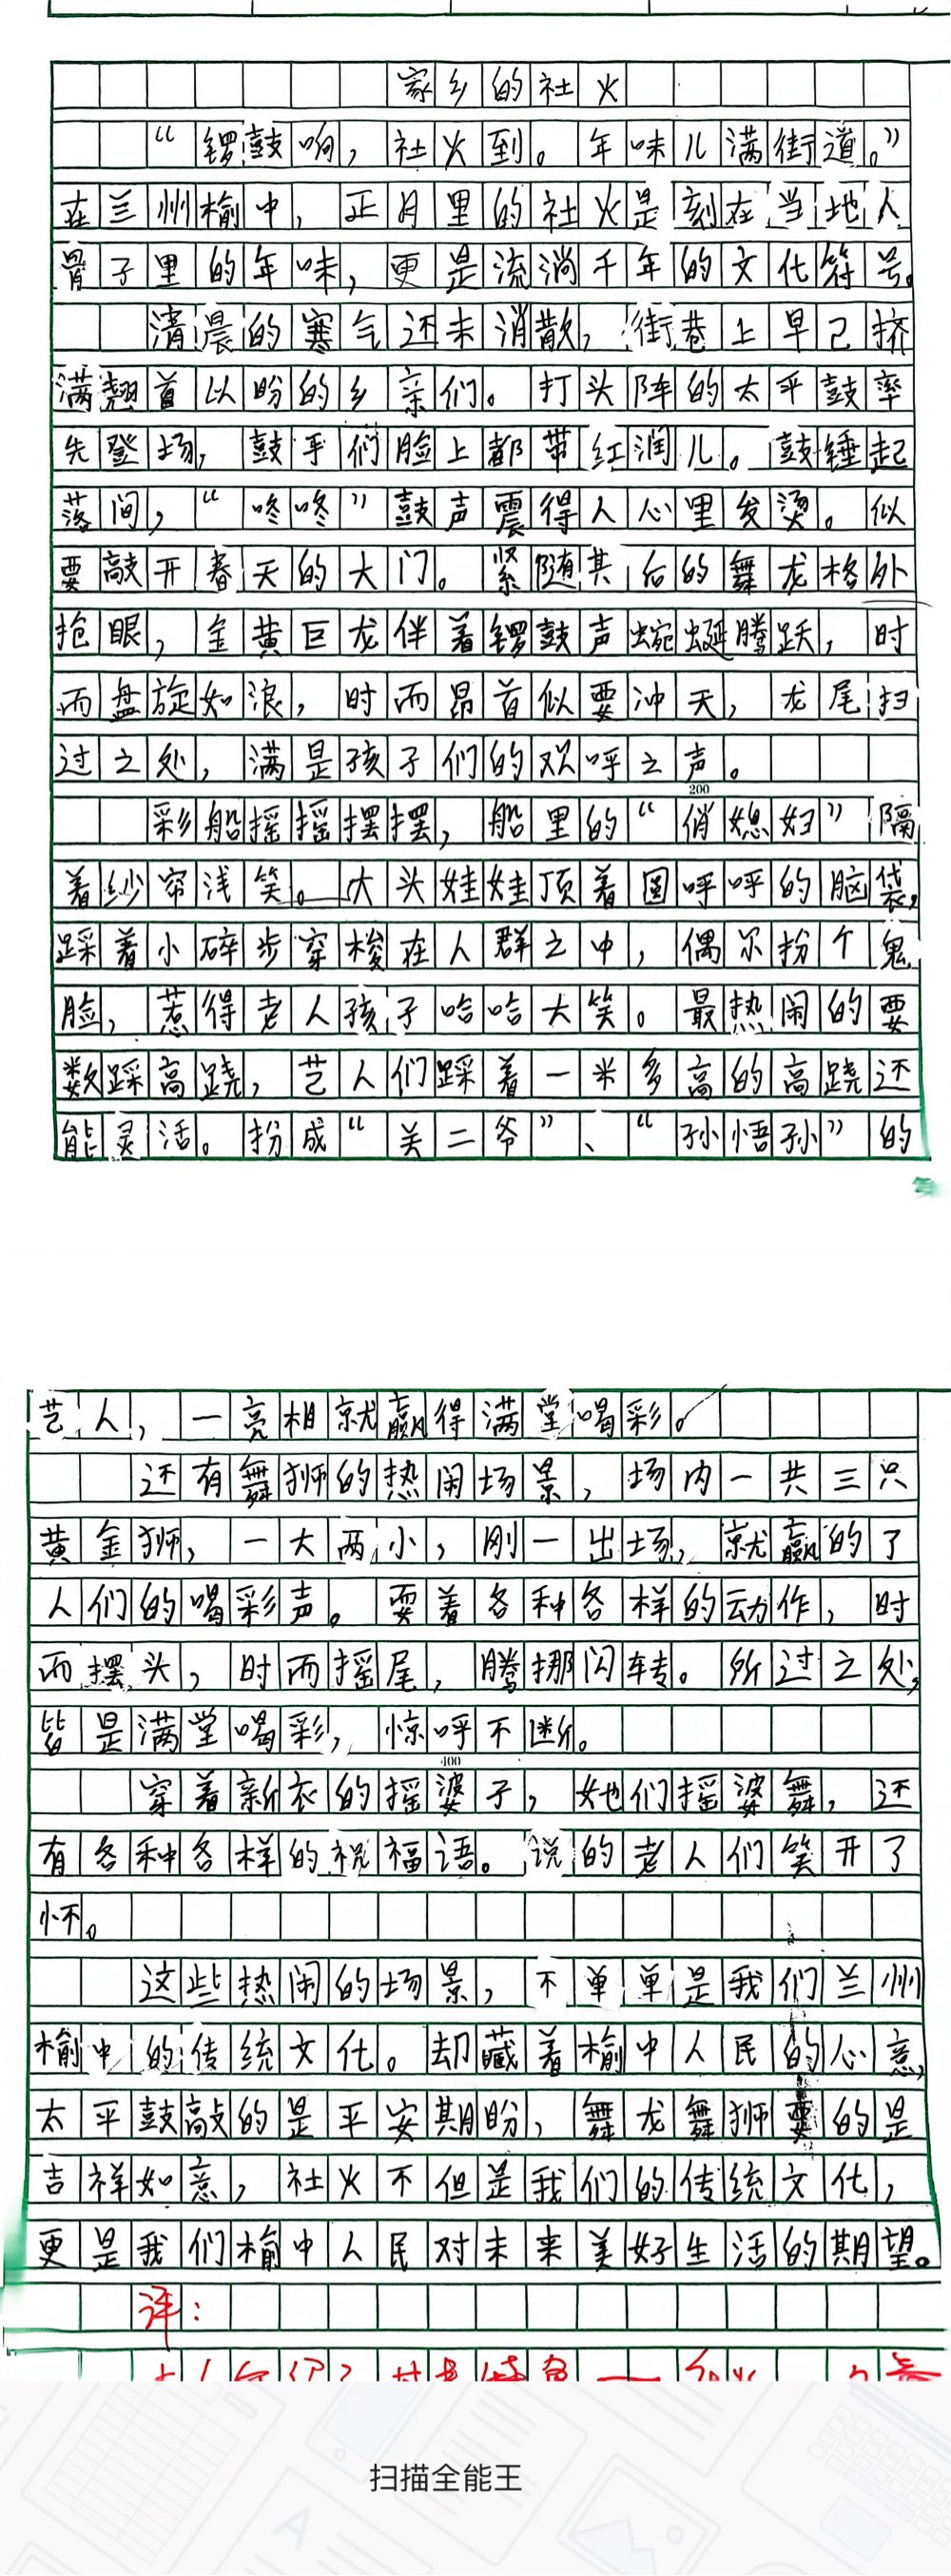 家乡的社火
“锣鼓响，社火到。年味儿满街道。”
在兰州榆中，正月里的社火是刻在当地人
骨子里的年味，更是流淌千年的文化符号。
清晨的寒气还未消散，街巷上早已挤
满翘首以盼的乡亲们。打头阵的太平鼓率
先登场，鼓手们脸上都带红润儿。鼓锤起
落间，“咚咚”鼓声震得人心里发烫。似
要敲开春天的大门。紧随其后的舞龙格外
抢眼，金黄巨龙伴着锣鼓声蜿蜒腾跃，时
而盘旋如浪，时而昂首似要冲天，龙尾扫
过之处，满是孩子们的欢呼之声。
200
彩船摇摇摆摆，船里的“俏媳妇”隔
着纱帘浅笑。大头娃娃顶着圆呼呼的脑袋，
踩着小碎步穿梭在人群之中，偶尔扮个鬼
脸，惹得老人孩子哈哈大笑。最热闹的要
数踩高跷，艺人们踩着一米多高的高跷还
能灵活。扮成“关二爷”、“孙悟孙”的
艺人，一亮相就赢得满堂喝彩。
还有舞狮的热闹场景，场内一共三只
黄金狮，一大两小，刚一出场，就赢的了
人们的喝彩声。耍着各种各样的动作，时
而摆头，时而摇尾，腾挪闪转。所过之处，
皆是满堂喝彩，惊呼不断。
400
穿着新衣的摇婆子，她们摇婆舞，还
有各种各样的祝福语。说的老人们笑开了
怀。
这些热闹的场景，不单单是我们兰州
榆中的传统文化。却藏着榆中人民的心意，
太平鼓敲的是平安期盼，舞龙舞狮耍的是
吉祥如意，社火不但是我们的传统文化，
更是我们榆中人民对未来美好生活的期望。
评：
扫描全能王